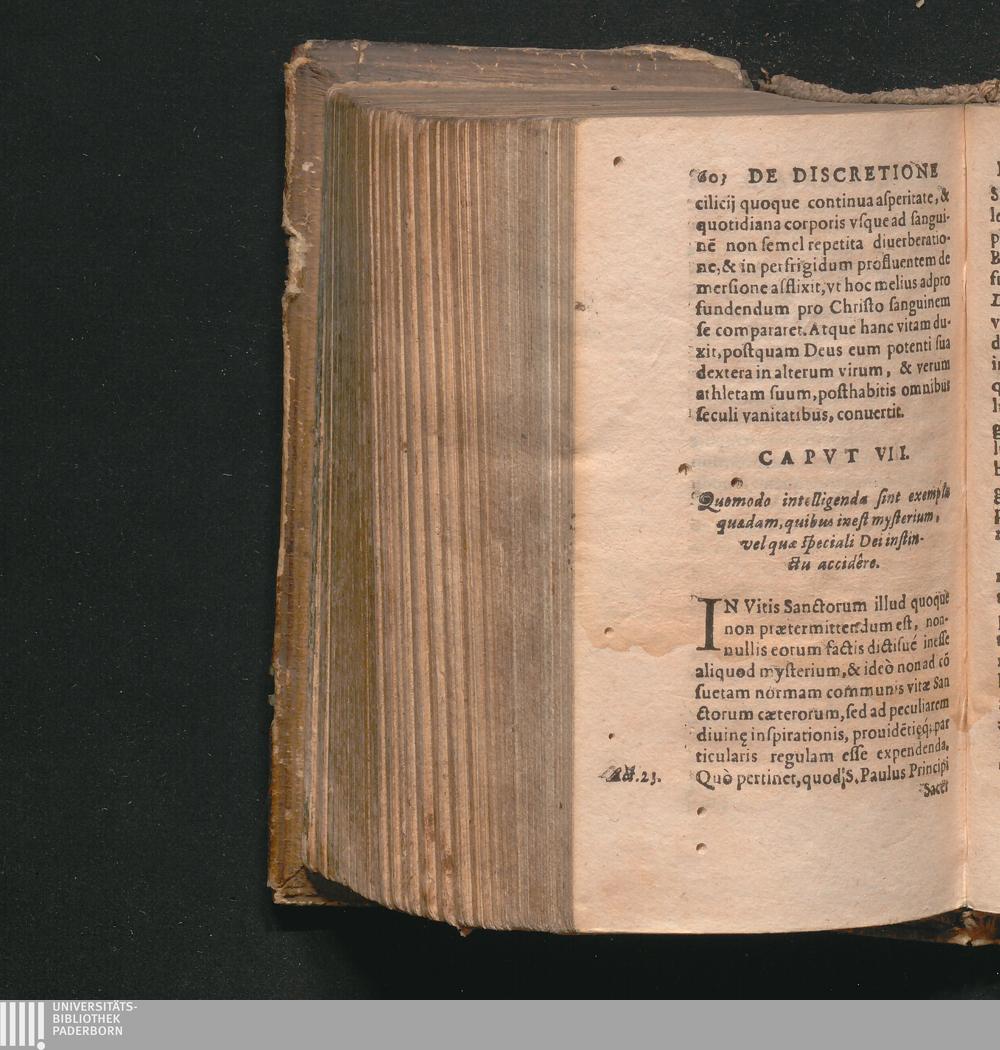 603 DE DISCRETIONE
cilicij quoque continua aſperitate, &
quotidiana corporis vſque ad ſangui-
nẽ non ſemel repetita diuerberatio-
ne, & in perfrigidum profluentem de
merſione afflixit, vt hoc melius ad pro
fundendum pro Chriſto ſanguinem
ſe compararet. Atque hanc vitam du-
xit, poſtquam Deus eum potenti ſua
dextera in alterum virum, & verum
athletam ſuum, poſthabitis omnibus
ſeculi vanitatibus, conuertit.
CAPVT VII.
Quomodo intelligenda ſint exempla
quædam, quibus ineſt myſterium,
vel quæ ſpeciali Dei inſtin-
ctu accidêre.
IN Vitis Sanctorum illud quoque
non prætermittendum eſt, non-
nullis eorum factis dictiſué ineſſe
aliquod myſterium, & ideò non ad cõ
ſuetam normam communis vitæ San
ctorum cæterorum, ſed ad peculiarem
diuinę inſpirationis, prouidẽtięq́; par
ticularis regulam eſſe expendenda.
Act. 23. Quò pertinet, quod S. Paulus Principi
Sacer
UNIVERSITÄTS-
BIBLIOTHEK
PADERBORN